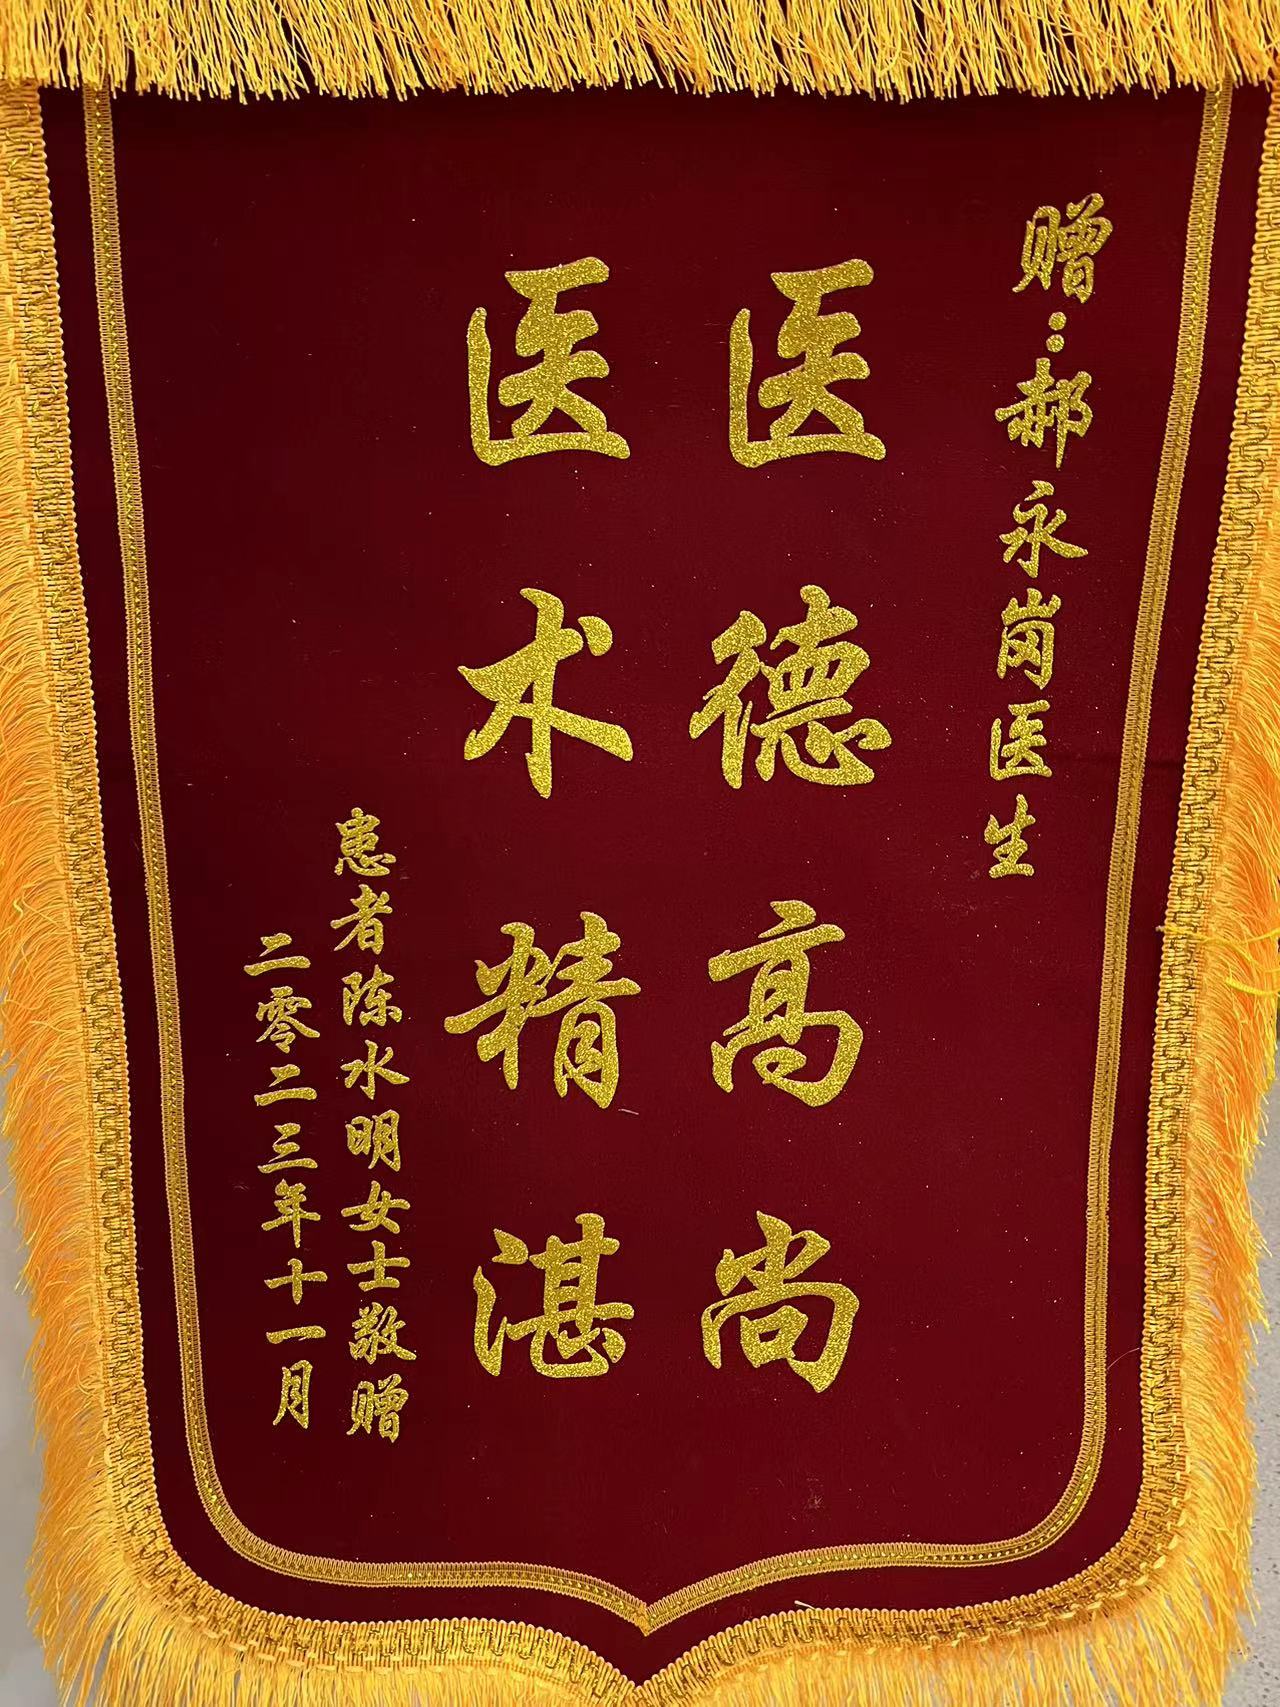 赠：郝永岗医生
医德高尚
医术精湛
患者陈水明女士敬赠
二零二三年十一月